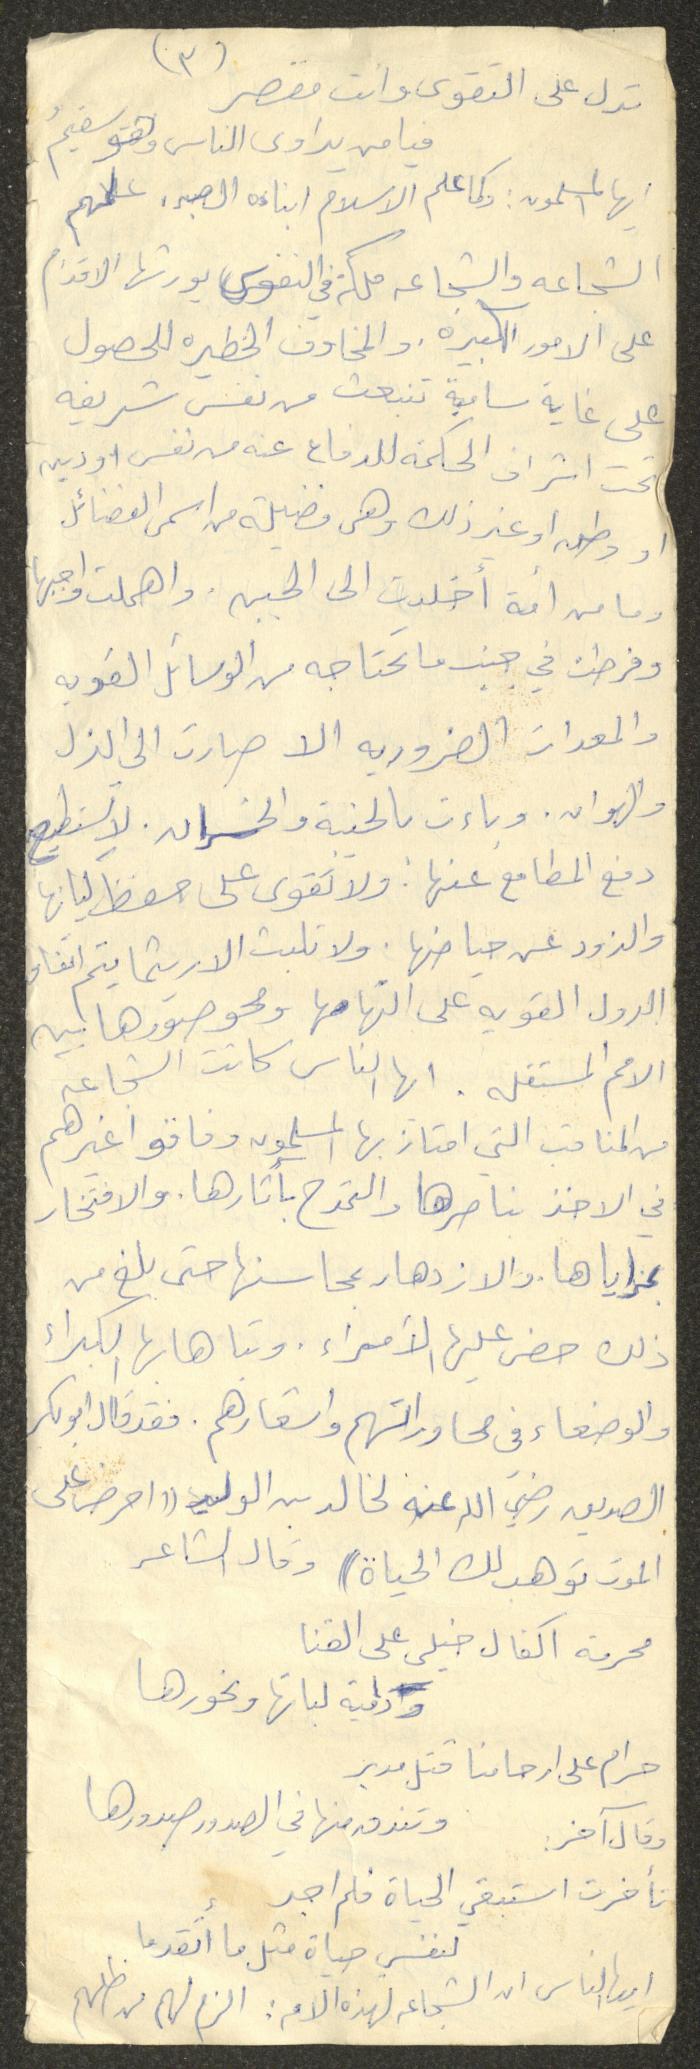 (٣)
تدل على التقوى وانت مقصر
فيا من يداوى الناس وهو سقيمُ
ايها المسلمون: وكما علم الاسلام ابناءه الصبر، علمهم
الشجاعه والشجاعه ملكة في النفوس يورثها الاقدام
على الامور الكبيرة. والمخاوف الخطيره للحصول
على غاية سامية تنبعث من نفس شريفه
تحت اشراف الحكمة للدفاع عنه من نفس اودين
او وطن او غير ذلك وهى فضيلة من اسمى الفضائل
وما من أمة أخلدت الى الجبن. واهملت واجبها
وفرطت في جنب ما تحتاجه من الوسائل القويه
والمعدات الضروريه الا صارت الى الذل
والهوان. وباءت بالخيبة والخسران. لا تستطيع
دفع المطامع عنها: ولا تقوى على حفظ كيانها
والذود عن حياضها. ولا تلبث الا ريثما يتم اتفاق
الدول القويه على التهامها ومحو صورها بين
الامم المستقله. ايها الناس كانت الشجاعه
من المناقب التي امتاز بها المسلمون وفاقوا غيرهم
في الاخذ بناصرها والتمدح بأثارها. والافتخار
بمزاياها. والازدهار بمحاسنها حتى بلغ من
ذلك حض عليها الأمراء. وتباها بها الكبراء
والوضعاء في محاوراتهم واشعارهم. فقد قال ابوبكر
الصديق رضي الله عنه لخالد بن الوليد ((احرص على
الموت توهب لك الحياة)) وقال الشاعر
محرمة اكفال خيلى على القنا
ودامية لباتها ونحورها
حرام على ارماحنا قتل مدبر
وتندق منها في الصدور صدورها
وقال آخر:
تأخرت استبقي الحياة فلم اجد
لنفسي حياة مثل ما أتقدما
ايها الناس ان الشجاعه لهذه الامه: الزم لهم من ظلهم